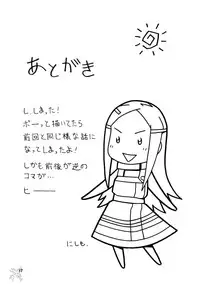 あとがき
し、しまった!
ボーって描いてたら
前回と同じ様な話に
なってしまったよ!
しかも前後が逆の
コマが…
ヒ――
にしも。